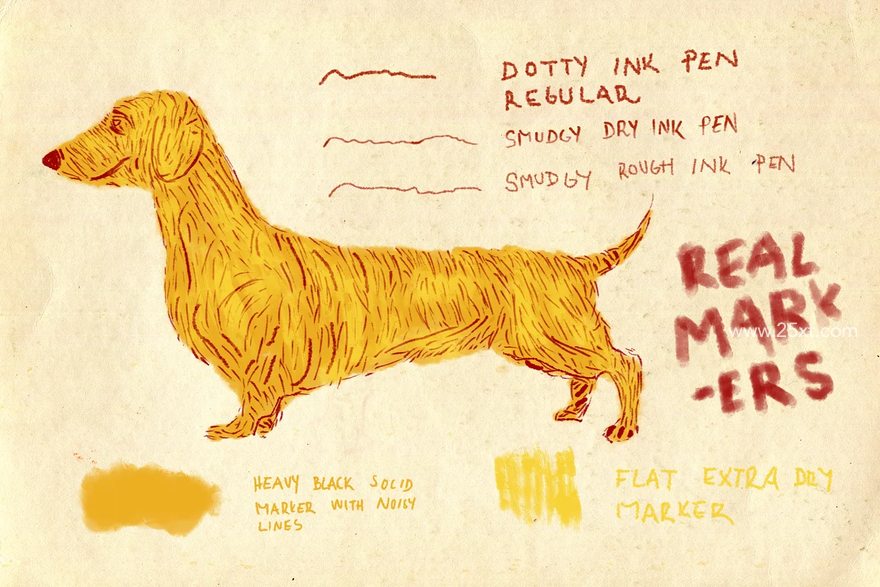 DOTTY INK PEN
REGULAR
SMUDGY DRY INK PEN
SMUDGY ROUGH INK PEN
REAL
MARK
-ERS
www.25xt.com
HEAVY BLACK SOLID
MARKER WITH NOISY
LINES
FLAT EXTRA DRY
MARKER